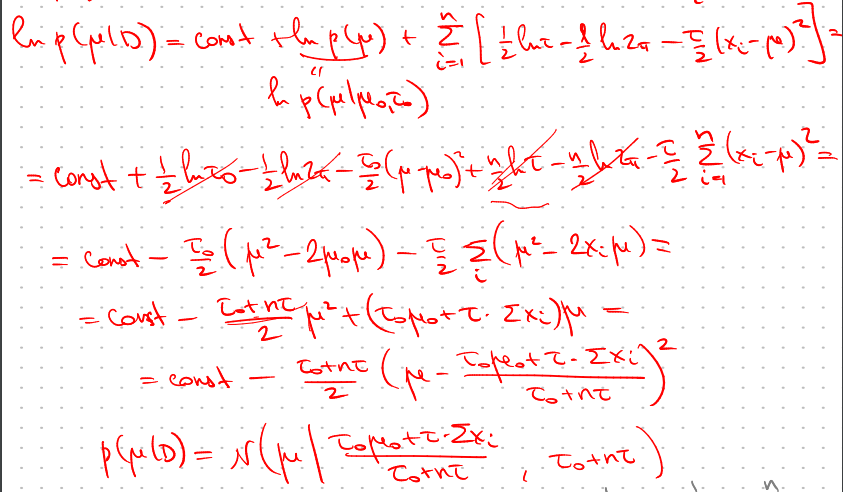 ln p(μ|D) = const + ln p(μ) + Σ_{i=1}^{n} [ 1/2 ln τ - 1/2 ln 2π - τ/2 (x_i - μ)² ] =
ln p(μ|μ₀,τ₀)
= const + 1/2 ln τ₀ - 1/2 ln 2π - τ₀/2 (μ - μ₀)² + n/2 ln τ - n/2 ln 2π - τ/2 Σ_{i=1}^{n} (x_i - μ)² =
= const - τ₀/2 (μ² - 2μ₀μ) - τ/2 Σ_i (μ² - 2x_iμ) =
= const - (τ₀ + nτ)/2 μ² + (τ₀μ₀ + τ · Σx_i)μ =
= const - (τ₀ + nτ)/2 (μ - (τ₀μ₀ + τ · Σx_i)/(τ₀ + nτ))²
p(μ|D) = N(μ | (τ₀μ₀ + τ · Σx_i)/(τ₀ + nτ), τ₀ + nτ)